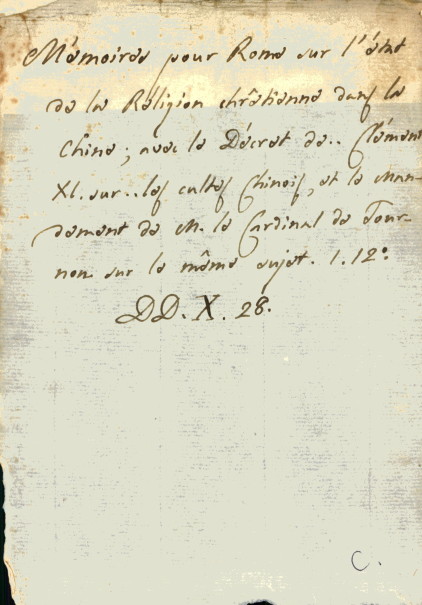 Mémoires pour Rome sur l'état
de la Réligion chrêtienne dans la
Chine; avec le Décret de.. Clément
XI. sur.. les cultes Chinois, et le Man-
dement de M. le Cardinal de Tour-
non sur le même sujet. 1. 12º.
DD. X. 28.
C.